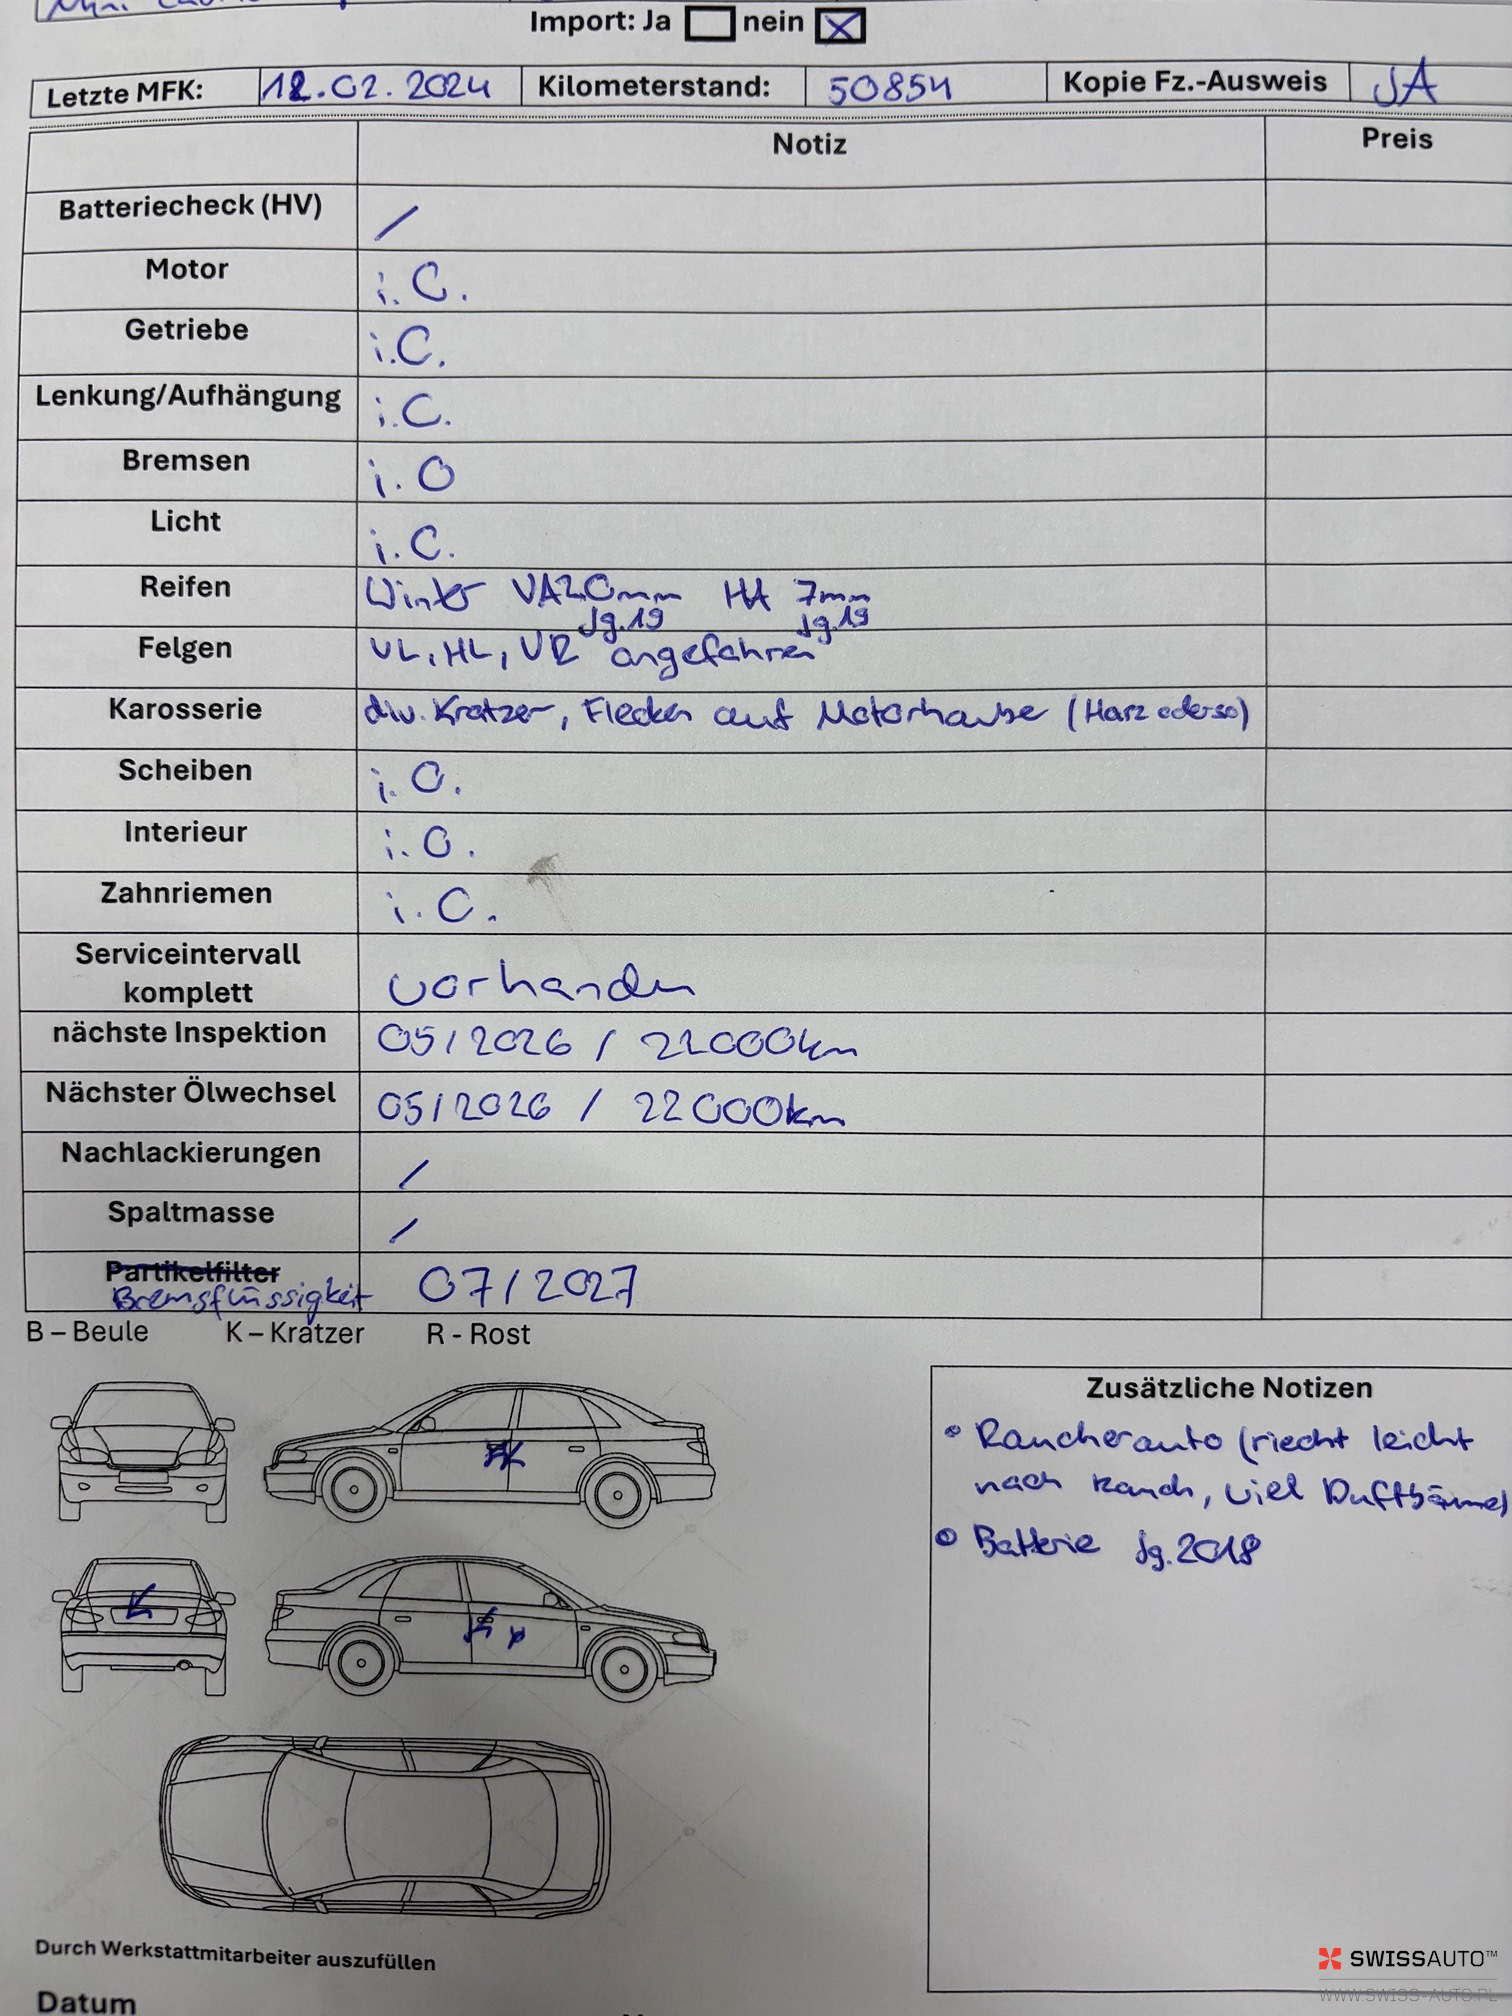 Import: Ja nein X
Letzte MFK: 12.02.2024 Kilometerstand: 50854 Kopie Fz.-Ausweis JA
Notiz Preis
Batteriecheck (HV) /
Motor i.O.
Getriebe i.O.
Lenkung/Aufhängung i.O.
Bremsen i.O
Licht i.O.
Reifen Winter VA mm HA 7mm
Jg.19 Jg.19
Felgen VL, HL, VR angefahren
Karosserie div. Kratzer, Flecken auf Motorhaube (Harz oderso)
Scheiben i.O.
Interieur i.O.
Zahnriemen i.O.
Serviceintervall
komplett vorhanden
nächste Inspektion 05/2026 / 22000km
Nächster Ölwechsel 05/2026 / 22000km
Nachlackierungen /
Spaltmasse /
Partikelfilter
Bremsflüssigkeit 07/2027
B – Beule K – Kratzer R - Rost
Zusätzliche Notizen
• Raucherauto (riecht leicht
nach Rauch, viel Duftbäume)
• Batterie Jg.2018
K
K
K
Durch Werkstattmitarbeiter auszufüllen
Datum
SWISSAUTO™
WWW.SWISS-AUTO.PL